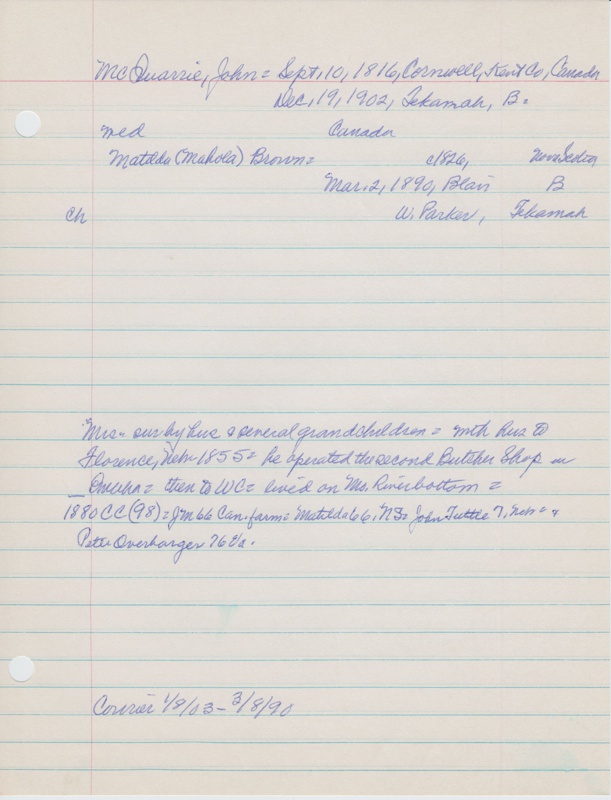 McQuarrie, John = Sept. 10, 1816, Cornwell, Kent Co, Canada
Dec, 19, 1902, Tekamah, B =
med Canada
Matilda (Mahola) Brown = c1826, Nova Scotia
Mar. 2, 1890, Blair B
ch W. Parker, Tekamah
Mrs = sur by hus & several grandchildren = with hus to
Florence, Neb 1855 = he operated the second Butcher Shop in
Omaha = then to WC = lived on Mo. River bottom =
1880 CC (98) = Jm 66 Can. farm = Matilda 66, NS = John Tuttle 7, Neb = &
Peter Overbarger 76 Va.
Courier 1/8/03 - 3/8/90